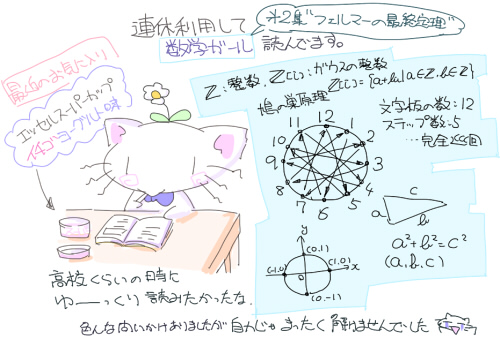 連休利用して
数学ガール
第2集"フェルマーの最終定理"
読んでます。
最近のお気に入り
エッセルスーパーカップ
イチゴヨーグルト味
Z:整数、Z[i]:ガウスの整数
Z[i]={a+bi|a∈Z,b∈Z}
鳩の巣原理
文字板の数:12
ステップ数:5
…完全巡回
12
1
2
3
4
5
6
7
8
9
10
11
a
b
c
a²+b²=c²
(a,b,c)
y
(0,1)
(-1,0)
(1,0)
x
0
(0,-1)
高校くらいの時に
ゆーーっくり読みたかったな。
色んな問いかけありましたが自力じゃまったく解けませんでした